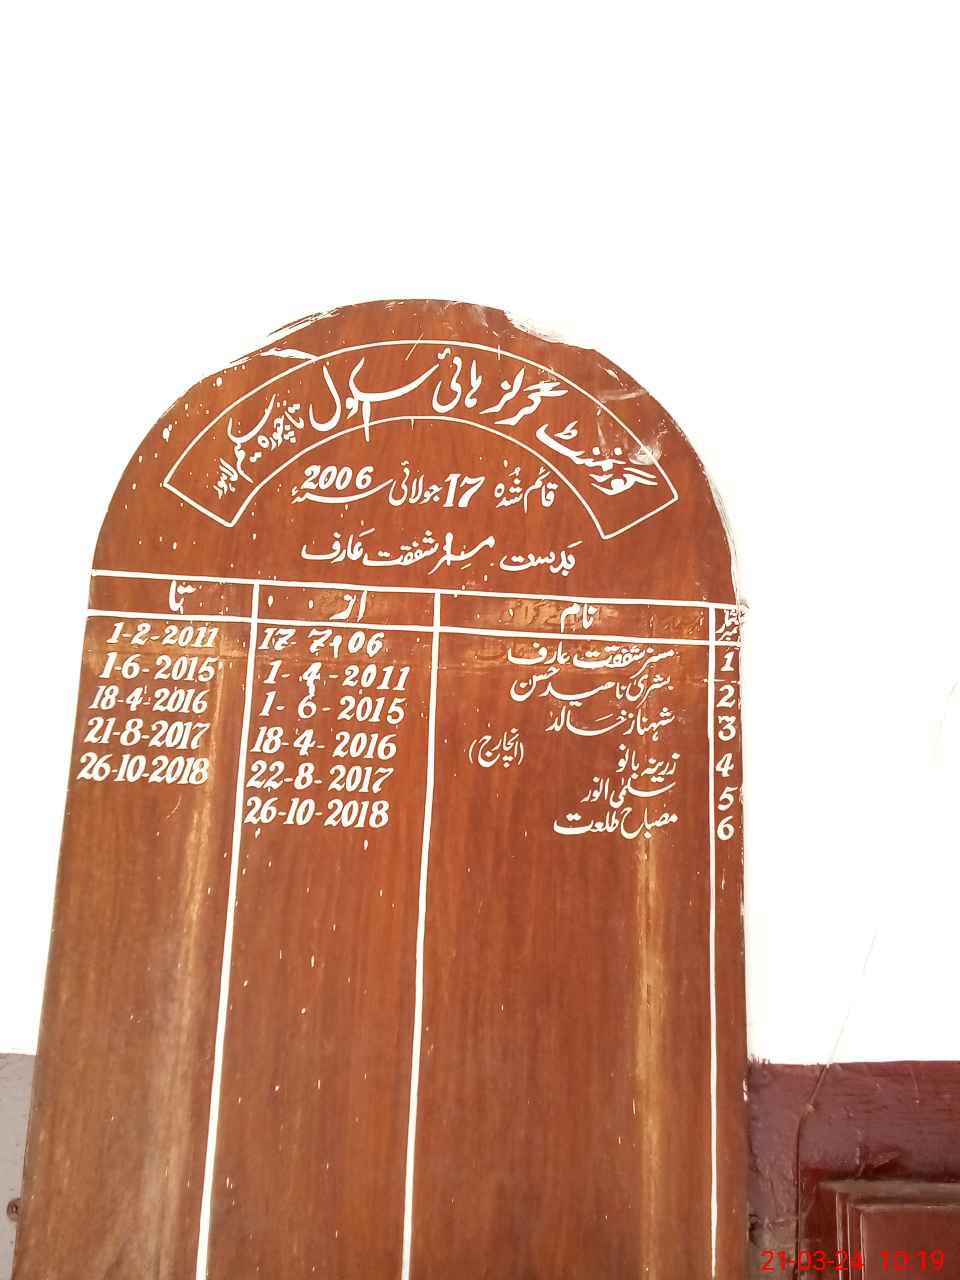 گورنمنٹ گرلز ہائی سکول تاجپورہ سکیم لاہور
قائم شدہ 17 جولائی سنہ 2006ء
بدست مسز شفقت عارف
نام از تا
1 مسز شفقت عارف 17 7 06 1-2-2011
2 بشریٰ ناہید حسن 1-4-2011 1-6-2015
3 شہناز خالد 1-6-2015 18-4-2016
4 زرینہ بانو (انچارج) 18-4-2016 21-8-2017
5 سلمٰی انور 22-8-2017 26-10-2018
6 مصباح طلعت 26-10-2018
21-03-24 10:19